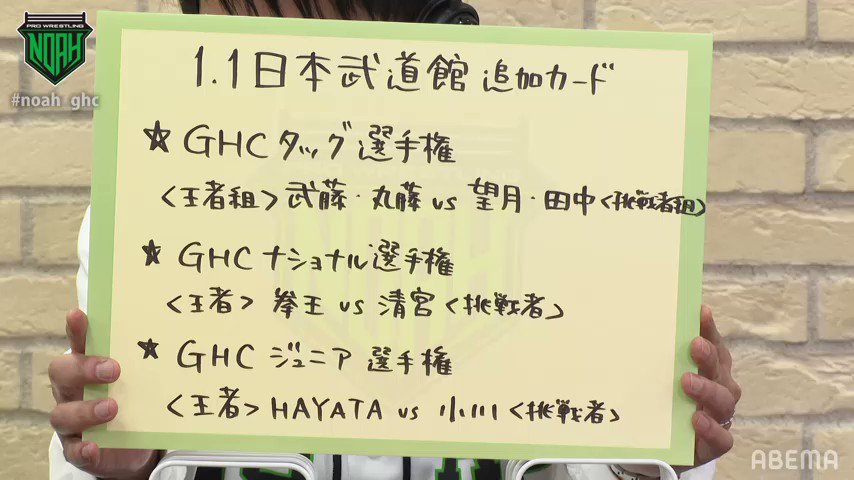 PRO WRESTLING
NOAH
#noah_ghc
1.1日本武道館 追加カード
☆GHCタッグ選手権
<王者組>武藤・丸藤 vs 望月・田中<挑戦者組>
★GHCナショナル選手権
<王者> 拳王 vs 清宮<挑戦者>
★GHCジュニア選手権
<王者>HAYATA vs 小川<挑戦者>
ABEMA